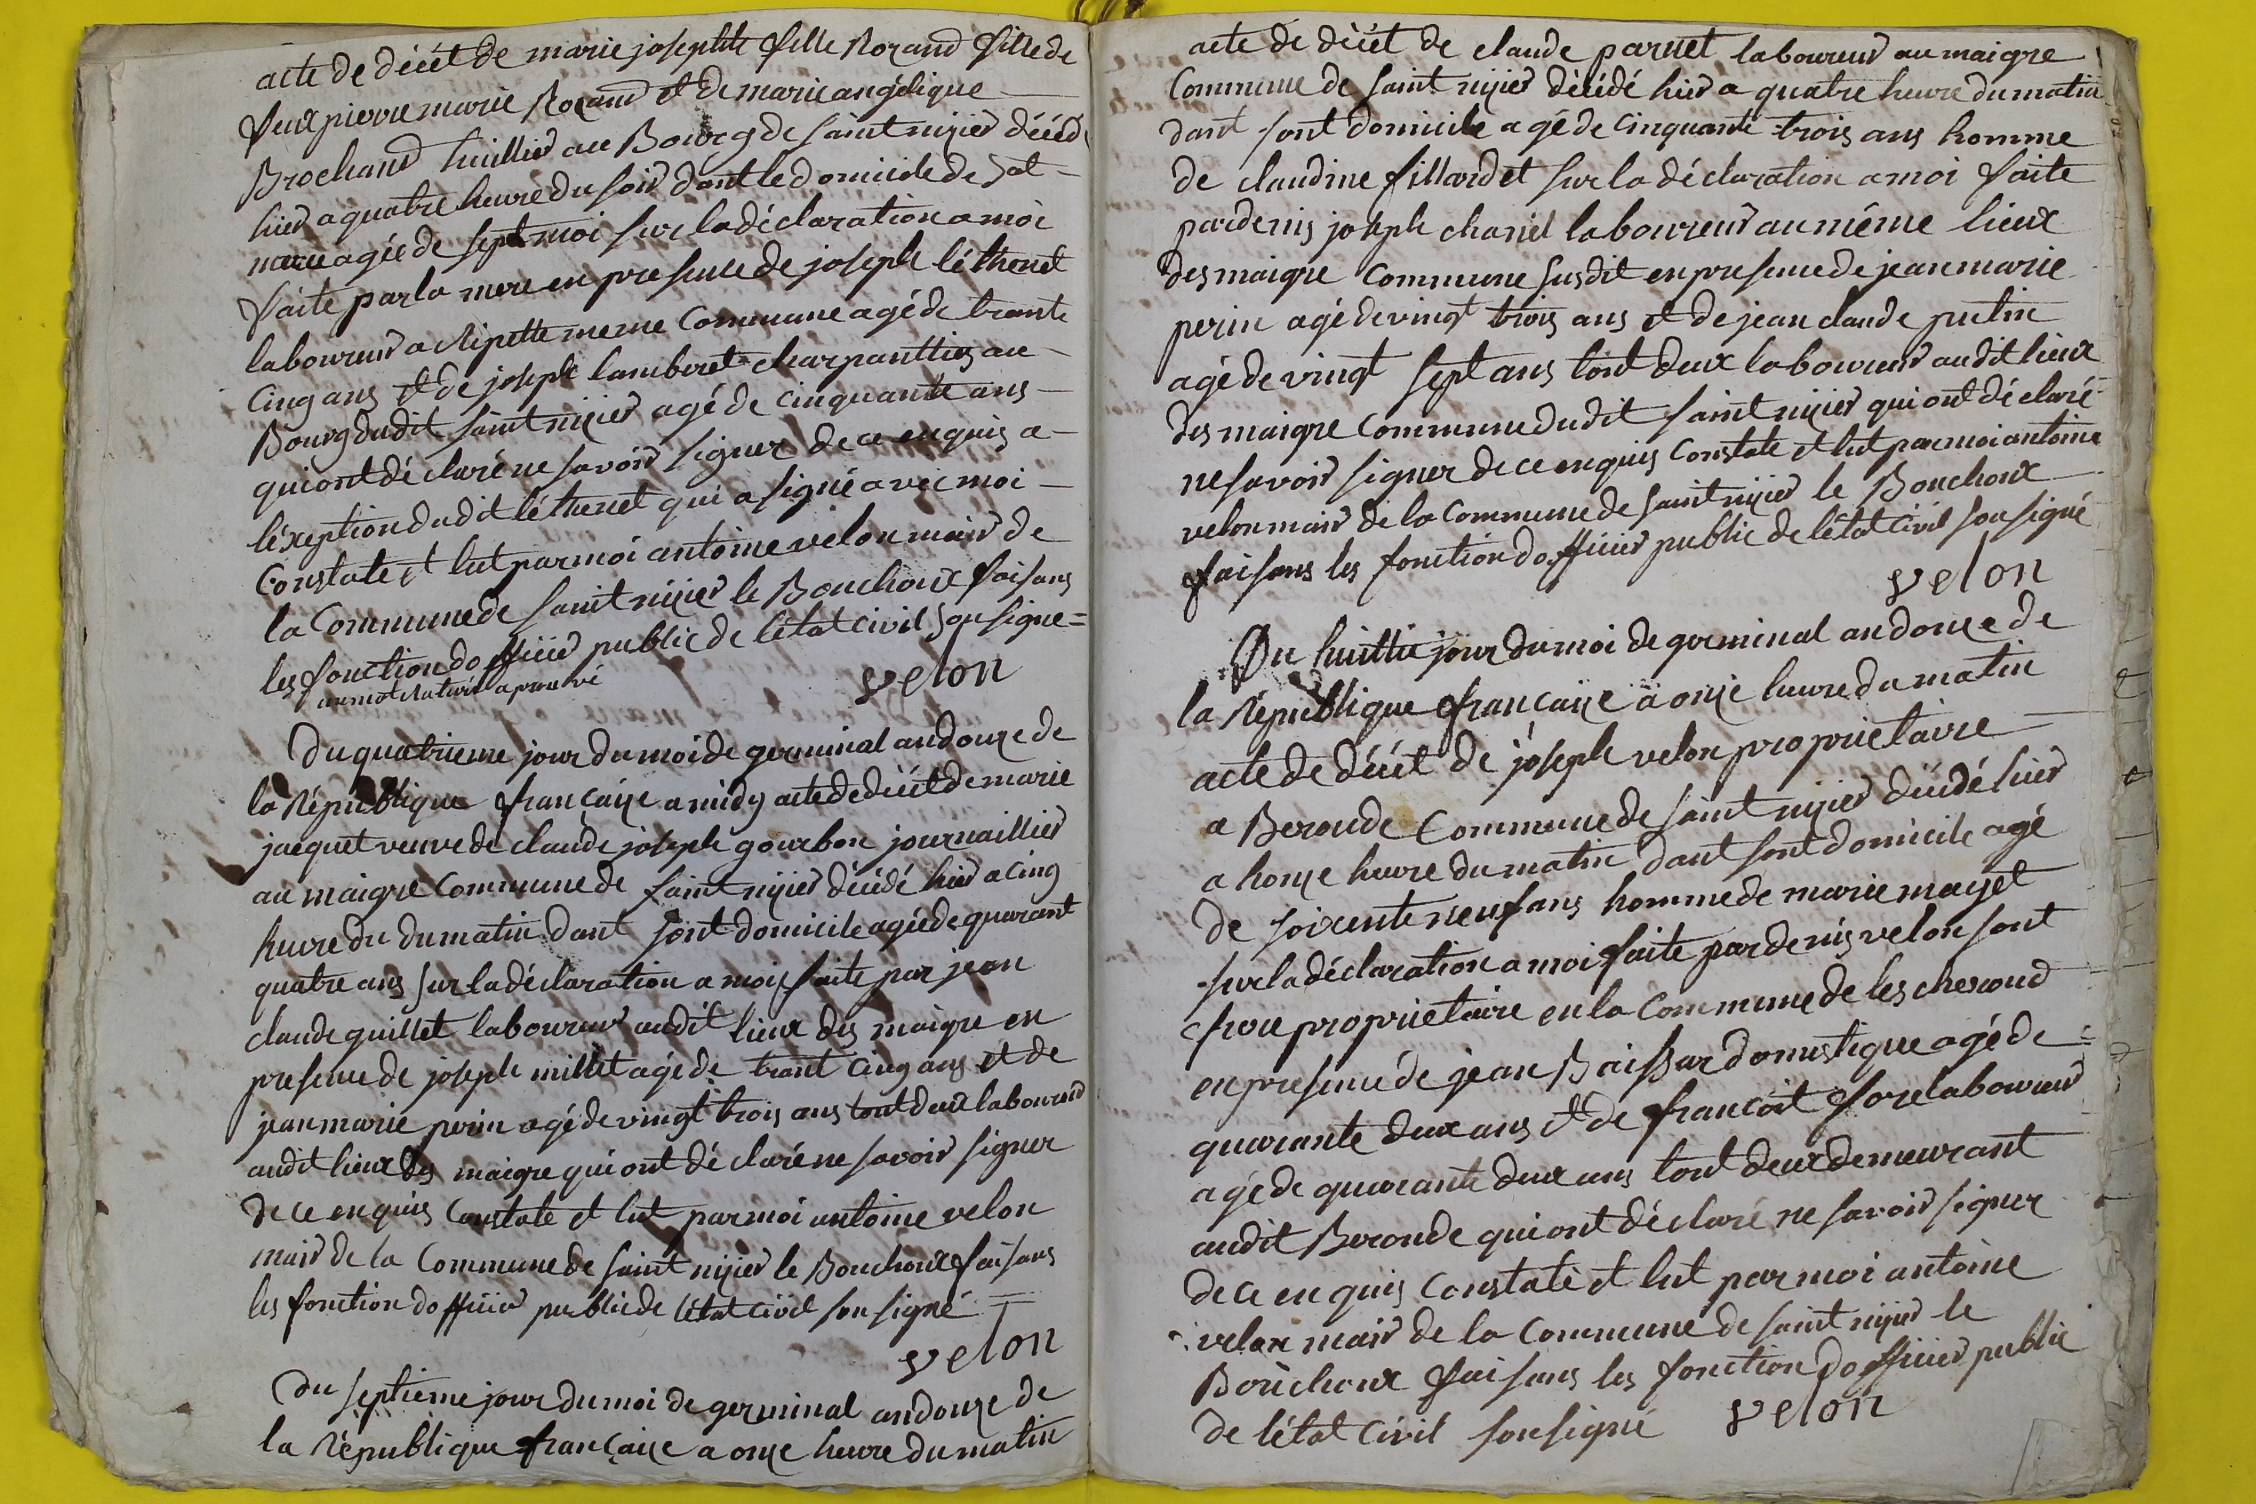 acte de décét de marie josephte fille Rozand fille de
feux pierre marie Rozand et de marie angélique
Brochand huillier au Bourg de saint nizier décédé
hier a quatre heure du soir dant le domicile de sat
mere agée de sept moi sur la déclaration a moi
faite par la mere en presence de joseph léthenet
laboureur a Ripette meme Commune agé de trante
Cinq ans et de joseph lamberet charpanttier au
Bourg dudit saint nizier agé de cinquante ans
qui ont déclaré ne savoir signer de ce enquis a
léxeption dudit léthenet qui a signé avec moi
Constate et lut par moi antoine velon mair de
la Commune de saint nizier le Bouchoux faisans
les fonction dofficier public de létat civil sousigne =
au mot Raturé aprouvé velon
Du quatrieme jour du moi de germinal an douze de
la République française a midy acte de décét de marie
jacquet veuve de claude joseph gourbon journaillier
au maigre Commune de saint nizier décédé hier a cinq
heure du du matin dant sont domicile agée de quarant
quatre ans sur la déclaration a moi faite par jean
claude guillet laboureur audit lieux des maigre en
presence de joseph millet agé de trant cinq ans et de
jean marie perin agé de vingt trois ans tout deux laboureur
audit lieux des maigre qui ont déclaré ne savoir signer
de ce enquis Constate et lut par moi antoine velon
mair de la Commune de saint nizier le Bouchoux faisans
les fonction dofficier public de létat civil sousigné
velon
Du septieme jour du moi de germinal an douze de
la République française a onze heure du matin
acte de décét de claude parvet laboureur au maigre
Commune de saint nizier décédé hier a quatre heure du matin
dant sont domicile agé de cinquante trois ans homme
de claudine fillardet sur la déclaration a moi faite
par denis joseph chariel laboureur au même lieux
des maigre Commune susdit en presence de jean marie
perin agé de vingt trois ans et de jean claude putin
agé de vingt sept ans tout deux laboureur audit lieux
des maigre Commune dudit saint nizier qui ont déclaré
ne savoir signer de ce enquis Constate et lut par moi antoine
velon mair de la Commune de saint nizier le Bouchoux
faisans les fonction dofficier public de létat civil sousigné
velon
Du huittie jour du moi de germinal an douze de
la République française à onze heure du matin
acte de décét de joseph velon proprietaire
a Beronde Commune de saint nizier décédé hier
a honze heure du matin dant sont domicile agé
de soixente neuf ans homme de marie mayet
sur la déclaration a moi faite par denis velon sont
frere proprietaire en la Commune de les cheroud
en presence de jean Baissar domestique agé de
quarante deux ans et de francoit fore laboureur
agé de quarante deux ans tout deux demeurant
audit Beronde qui ont déclaré ne savoir signer
de ce enquis Constaté et lut par moi antoine
velon mair de la Commune de saint nizier le
Bouchoux faisans les fonction dofficier public
de létat civil sousigné velon